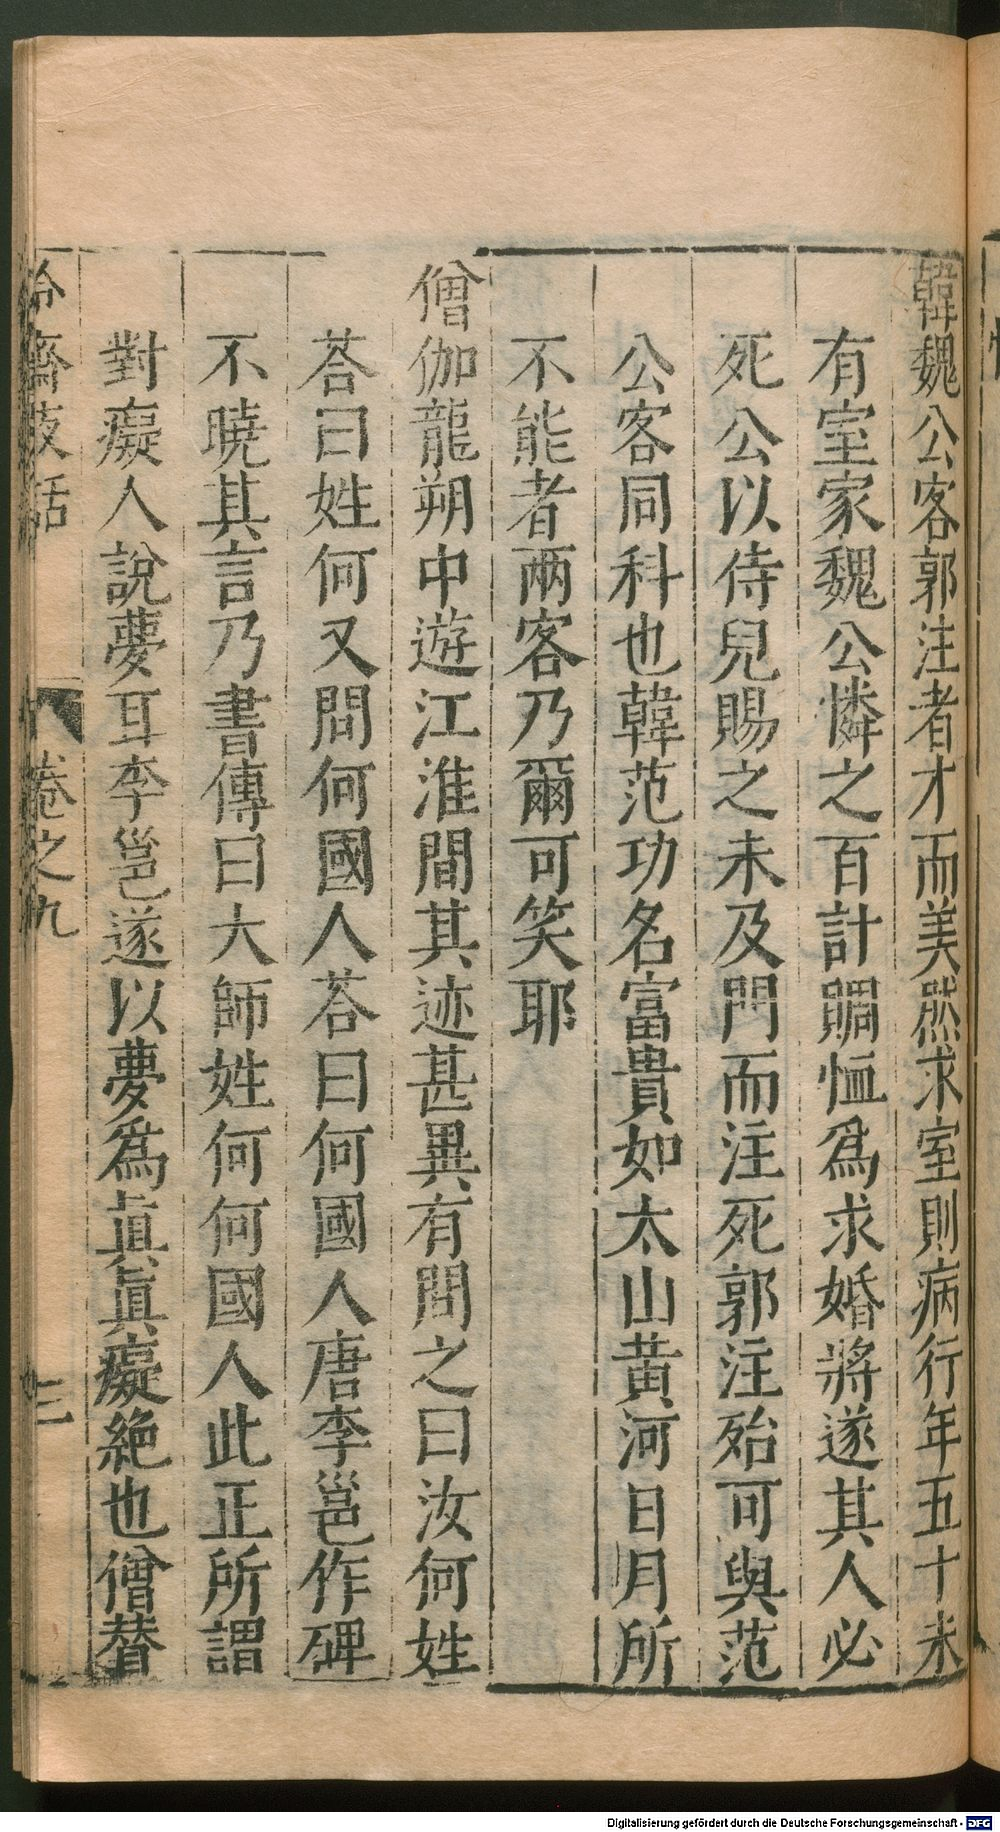 韓魏公客郭注者才而美然求室則病行年五十未
有室家魏公憐之百計賙恤爲求婚將遂其人必
死公以侍兒賜之未及門而注死郭注殆可與范
公客同科也韓范功名富貴如太山黃河日月所
不能者兩客乃爾可笑耶
僧伽龍朔中遊江淮間其迹甚異有問之曰汝何姓
荅曰姓何又問何國人荅曰何國人唐李邕作碑
不曉其言乃書傳曰大師姓何何國人此正所謂
對癡人說夢耳李邕遂以夢爲眞眞癡絶也僧賛
冷齋夜話 卷之九 三
Digitalisierung gefördert durch die Deutsche Forschungsgemeinschaft - DFG